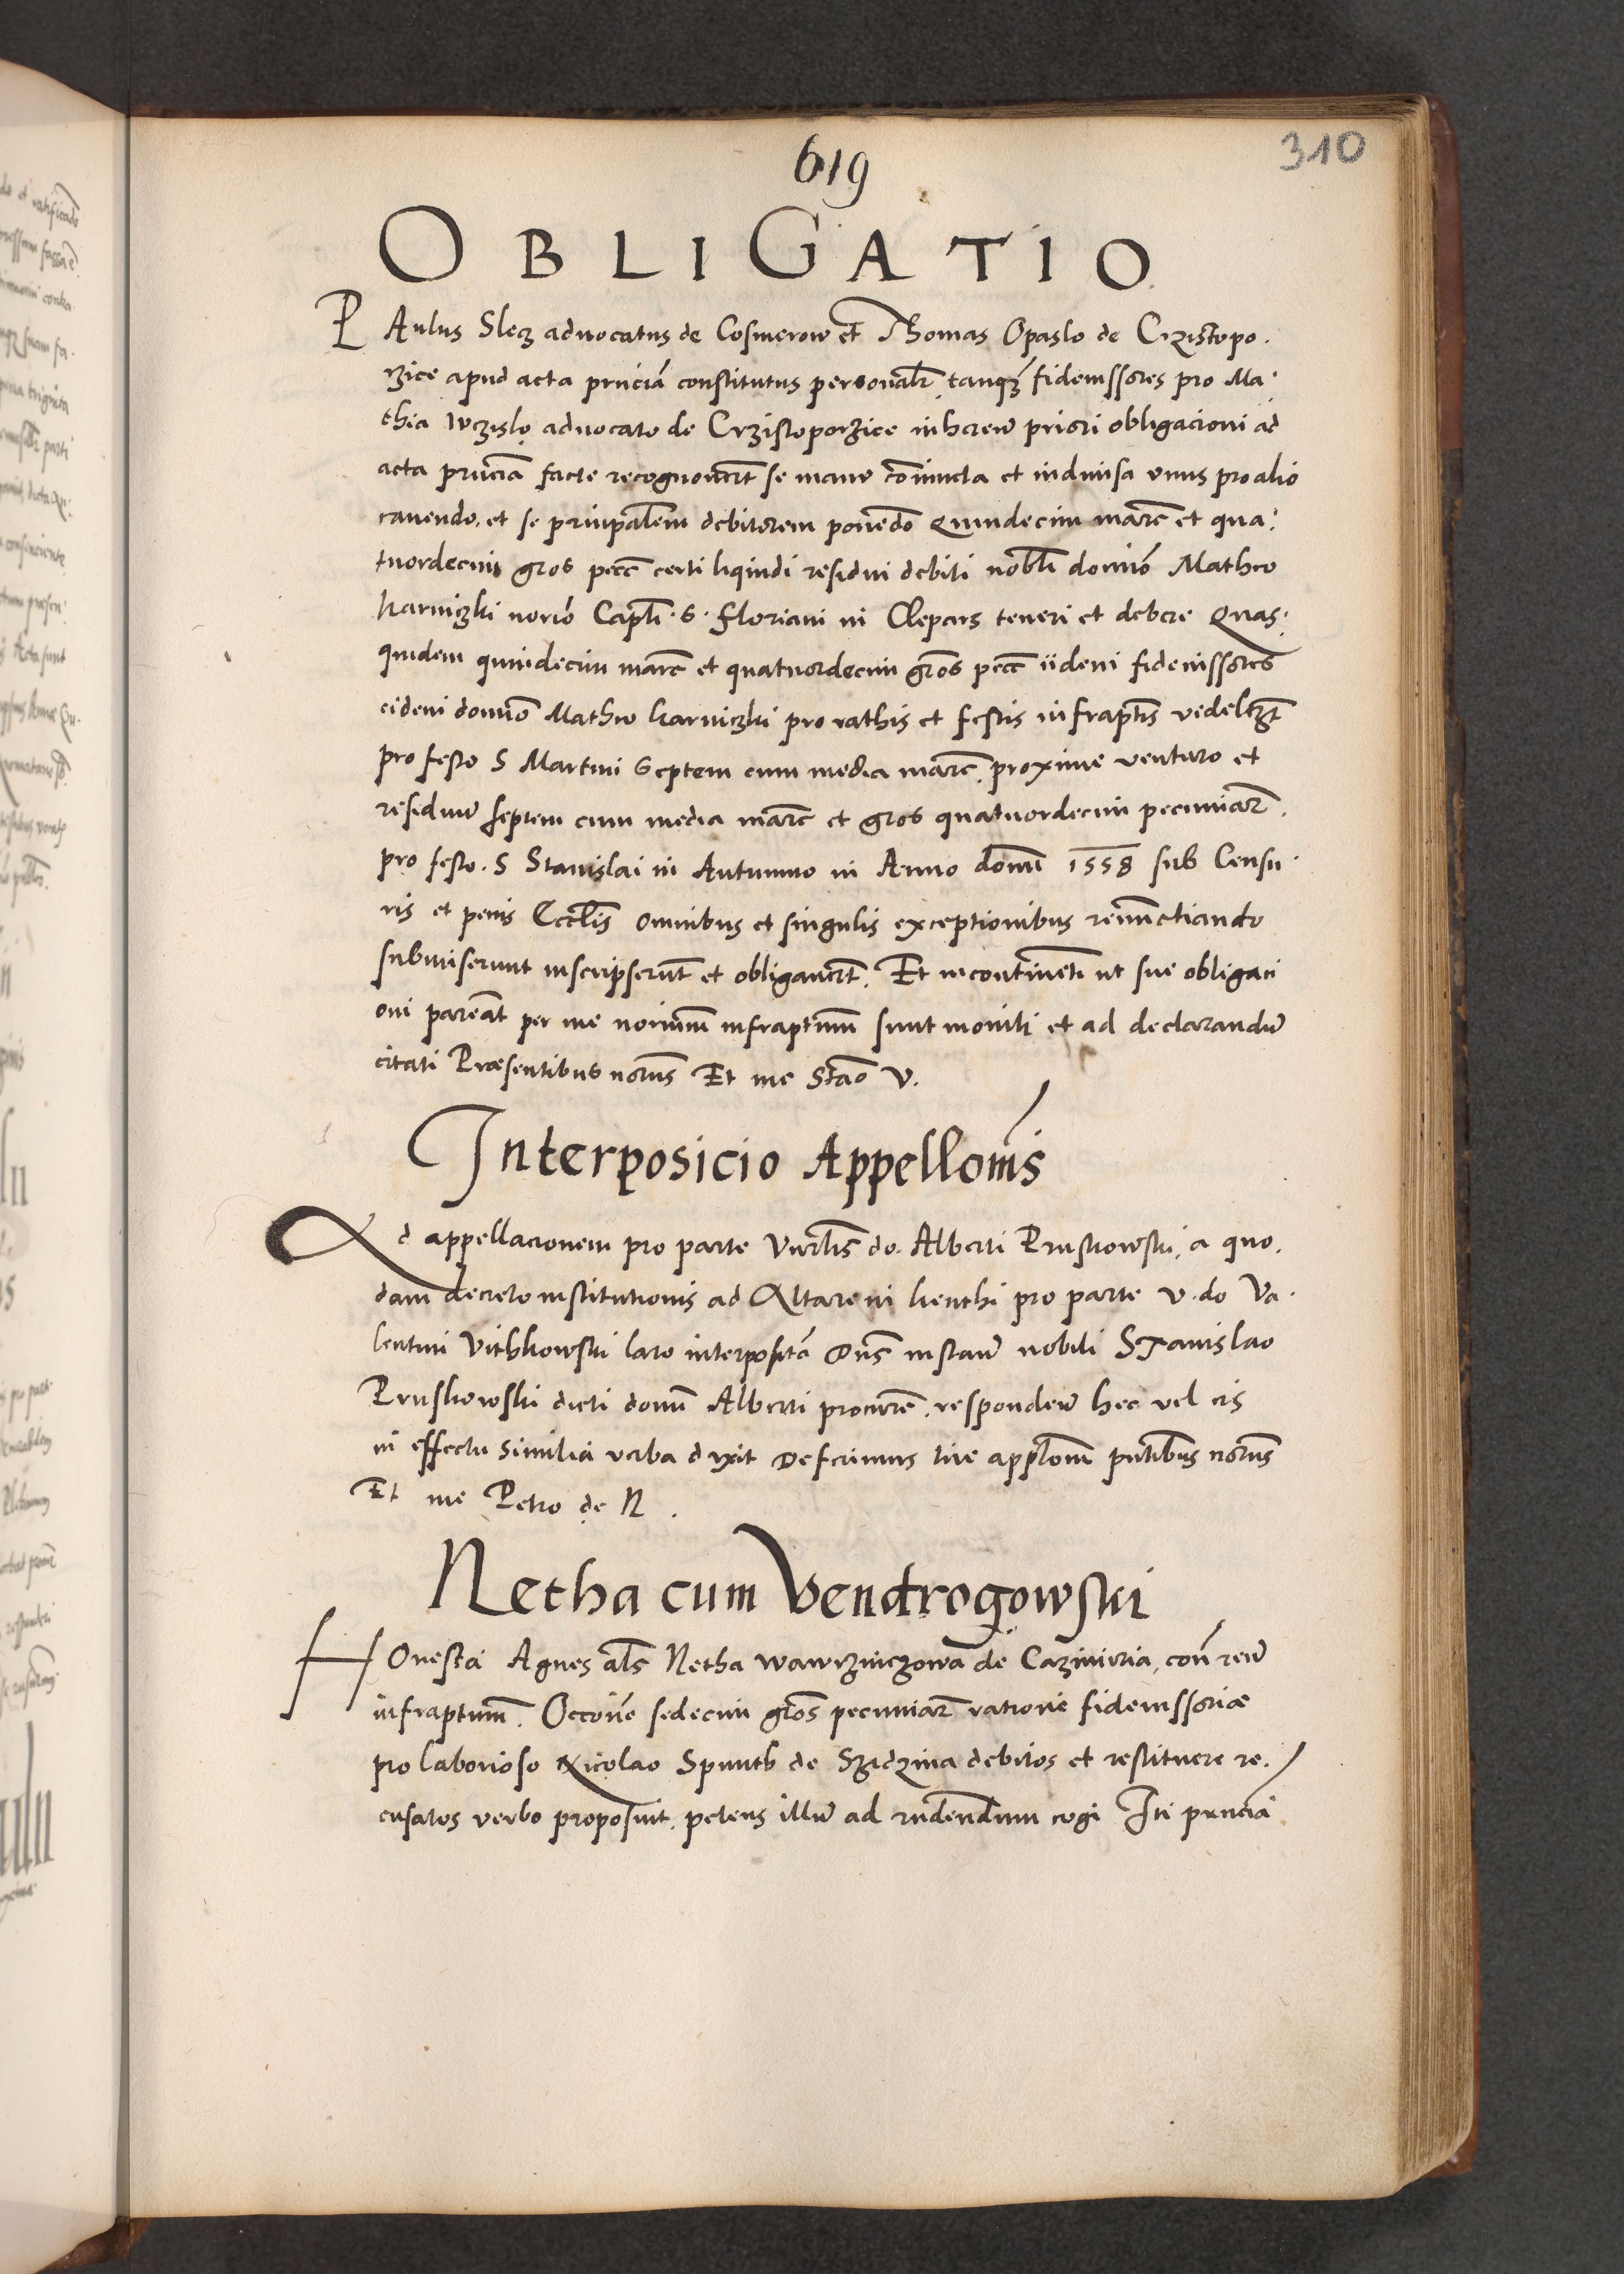 310
619
OBLIGATIO
PAulus Slecz advocatus de Cosmerow et Thomas Opaslo de Crzistopo.
rzice apud acta pnciā constitutus personalr̄ tanqȝ fideiussores pro Ma.
thia Wzislo advocato de Crzistoporzice inherēn priori obligacioni ad
acta pnciā facte recognovert̄ se manu cōiuncta et indivisa unus pro alio
cavendo. et se prinpalem debitorem ponēdo Quindecim marc̄ et qua.
tuordecim gros pecc̄ certi liquidi residui debiti nobli domīo Matheo
Karniczki norio Capli S. Floriani in Clepars teneri et debere Quas.
quidem quindecim marc̄ et quatuordecim gros pecc̄ iidem fideiussores
eidem domīo Matheo Karniczki pro rathis et festis infraptis videlczt
pro festo S Martini Septem cum media marc̄. proxime venturo et
residuū septem cum media marc̄ et gros quatuordecim pecuniar̄.
pro festo. S Stanislai in Autumno in Anno domī 1558 sub Censu.
ris et penis Eccl̄is omnibus et singulis exceptionibus renūctiando
submiserunt inscripserūt et obligavert̄. Et incontinēti ut sue obligaci
oni pareāt per me noriūm infraptum sunt moniti et ad declarandū
citati Præsentibus norūs Et me Stāo V.
Interposicio Appellonis
Ad appellacionem pro parte Vnrlis do. Alberti Pruskowski, a quo.
dam decreto institutionis ad Altare in Kenthi pro parte V. do Va.
lentini Vithkowski lato interpositā Dns̄ instan̄ nobili Stanislao
Pruskowski dicti domī Alberti procur̄e. responden̄ hec vel eis
in effectu similia verba dixit Deferimus tue applōni pntibus norūs
Et me Petro de N.
Netha cum Vendrogowski
HOnesta Agnes als Netha Wawrziniczowa de Cazimiria, con̄ reū
infraptum. Occōne sedecim gros pecuniar̄ ratione fideiussoriæ
pro laborioso Nicolao Spunth de Szidzina debitos et restituere re.
cusatos verbo proposuit. petens illū ad rndendum cogi Iti pnciā